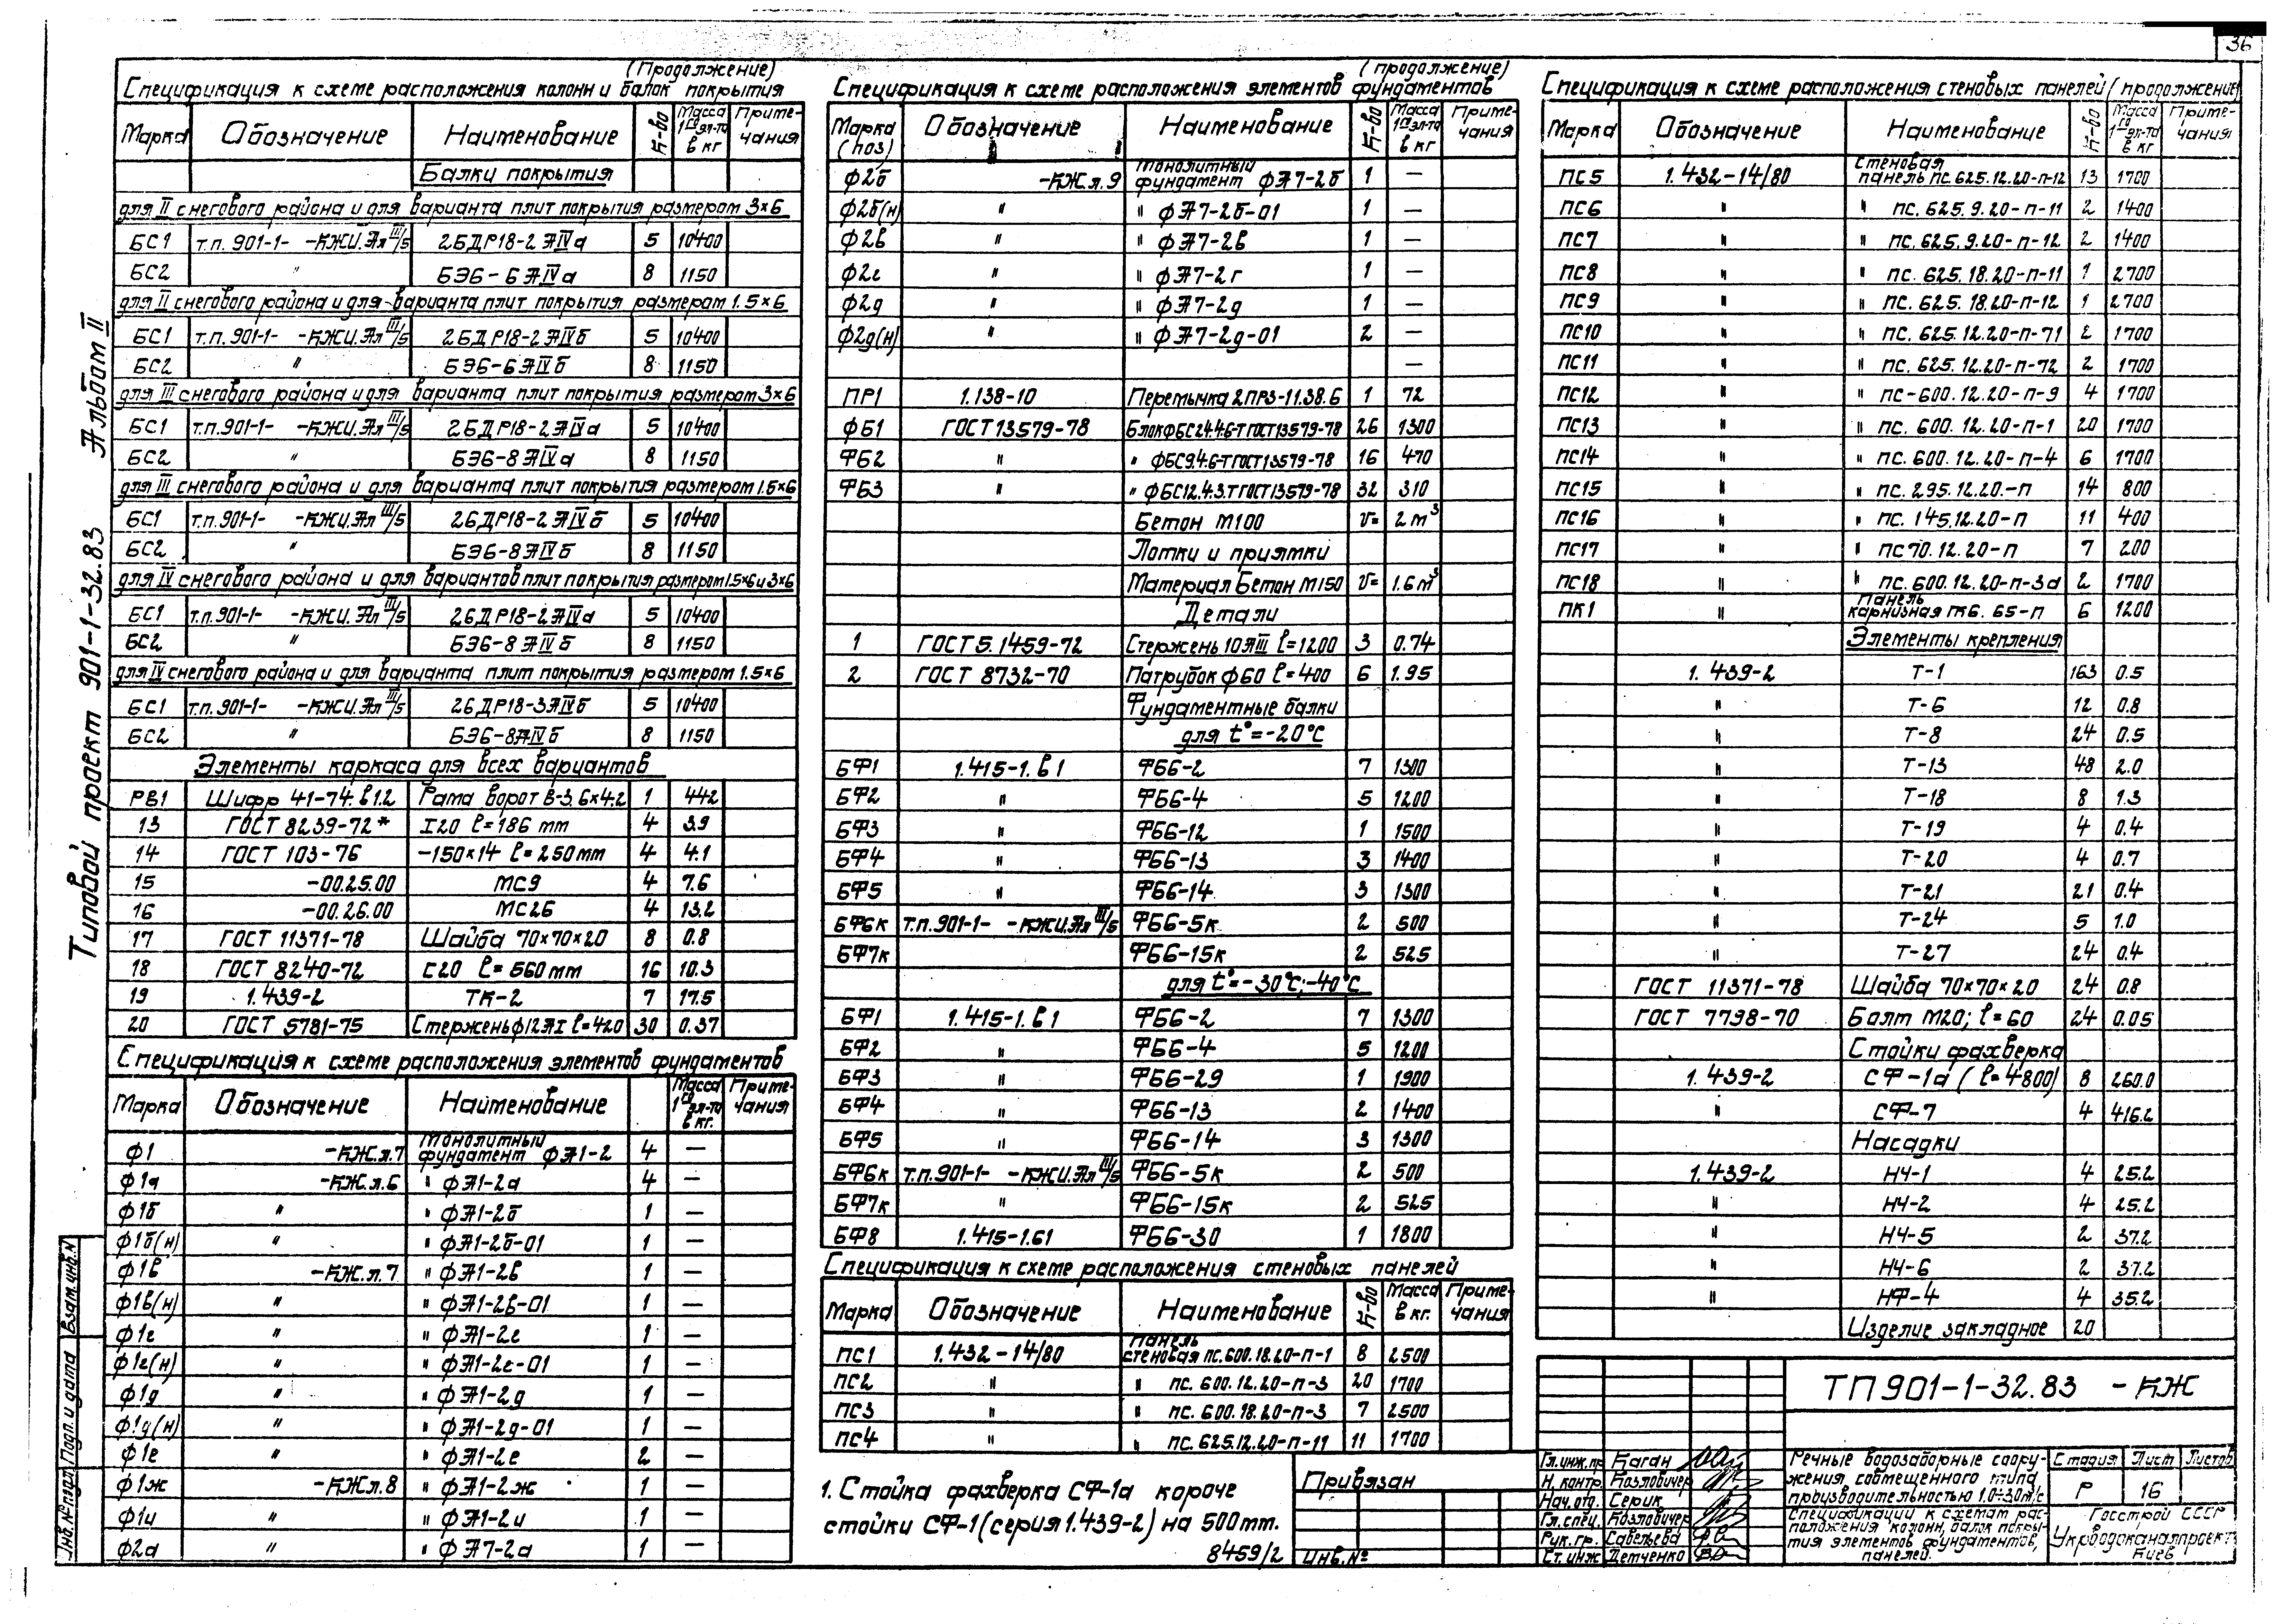 36
Типовой проект 901-1-32.83 Альбом II
(Продолжение)
Спецификация к схеме расположения колонн и балок покрытия
Марка Обозначение Наименование К-во Масса 1го эл-та в кг Примечания
Балки покрытия
для II снегового района и для варианта плит покрытия размером 3×6
БС1 т.п. 901-1- -КЖИ.Ал III/5 2БДР18-2АIVа 5 10400
БС2 " БЭ6-6АIVа 8 1150
для II снегового района и для варианта плит покрытия размером 1.5×6
БС1 т.п. 901-1- -КЖИ.Ал III/5 2БДР18-2АIVб 5 10400
БС2 " БЭ6-6АIVб 8 1150
для III снегового района и для варианта плит покрытия размером 3×6
БС1 т.п.901-1- -КЖИ.Ал III/5 2БДР18-2АIVа 5 10400
БС2 " БЭ6-8АIVа 8 1150
для III снегового района и для варианта плит покрытия размером 1.5×6
БС1 т.п.901-1- -КЖИ.Ал III/5 2БДР18-2АIVб 5 10400
БС2 " БЭ6-8АIVб 8 1150
для IV снегового района и для вариантов плит покрытия размером 1.5×6 и 3×6
БС1 т.п.901-1- -КЖИ.Ал III/5 2БДР18-2АIVа 5 10400
БС2 " БЭ6-8АIVб 8 1150
для IV снегового района и для варианта плит покрытия размером 1.5×6
БС1 т.п.901-1- -КЖИ.Ал III/5 2БДР18-3АIVб 5 10400
БС2 " БЭ6-8АIVб 8 1150
Элементы каркаса для всех вариантов
РВ1 Шифр 41-74.в1.2 Рама ворот В-3.6×4.2 1 442
13 ГОСТ 8239-72* I20 ℓ=186 mm 4 3.9
14 ГОСТ 103-76 -150×14 ℓ=250mm 4 4.1
15 -00.25.00 МС9 4 7.6
16 -00.26.00 МС26 4 13.2
17 ГОСТ 11371-78 Шайба 70×70×20 8 0.8
18 ГОСТ 8240-72 С20 ℓ=560mm 16 10.3
19 1.439-2 ТК-2 7 17.5
20 ГОСТ 5781-75 Стержень ф12АI ℓ=420 30 0.37
Спецификация к схеме расположения элементов фундаментов
Марка Обозначение Наименование Масса 1го эл-та в кг. Примечания
Ф1 -КЖ.л.7 Монолитный фундамент ФА1-2 4 —
Ф1а -КЖ.л.6 " ФА1-2а 4 —
Ф1б " " ФА1-2б 1 —
Ф1б(н) " " ФА1-2б-01 1 —
Ф1в -КЖ.л.7 " ФА1-2в 1 —
Ф1в(н) " " ФА1-2в-01 1 —
Ф1г " " ФА1-2г 1 —
Ф1г(н) " " ФА1-2г-01 1 —
Ф1д " " ФА1-2д 1 —
Ф1д(н) " " ФА1-2д-01 1 —
Ф1е " " ФА1-2е 2 —
Ф1ж -КЖ.л.8 " ФА1-2ж 1 —
Ф1и " " ФА1-2и 1 —
Ф2а " " ФА7-2а 1 —
(продолжение)
Спецификация к схеме расположения элементов фундаментов
Марка (поз) Обозначение Наименование К-во Масса 1го эл-та в кг Примечания
Ф2б -КЖ.л.9 Монолитный фундамент ФА7-2б 1 —
Ф2б(н) " " ФА7-2б-01 1 —
Ф2в " " ФА7-2в 1 —
Ф2г " " ФА7-2г 1 —
Ф2д " " ФА7-2д 1 —
Ф2д(н) " " ФА7-2д-01 2 —
—
ПР1 1.138-10 Перемычка 2ПР3-11.38.6 1 72
ФБ1 ГОСТ 13579-78 Блок ФБС24.4.6-Т ГОСТ13579-78 26 1300
ФБ2 " " ФБС9.4.6-Т ГОСТ13579-78 16 470
ФБ3 " " ФБС12.4.3.Т ГОСТ13579-78 32 310
Бетон М100 v= 2 м³
Лотки и приямки
Материал Бетон М150 v= 1.6м³
Детали
1 ГОСТ 5.1459-72 Стержень 10АIII ℓ=1200 3 0.74
2 ГОСТ 8732-70 Патрубок ф60 ℓ=400 6 1.95
Фундаментные балки
для t°=-20°С
БФ1 1.415-1. в1 ФБ6-2 7 1300
БФ2 " ФБ6-4 5 1200
БФ3 " ФБ6-12 1 1500
БФ4 " ФБ6-13 3 1400
БФ5 " ФБ6-14 3 1300
БФ6к т.п.901-1- -КЖИ.Ал III/5 ФБ6-5к 2 500
БФ7к ФБ6-15к 2 525
для t°=-30°С;-40°С
БФ1 1.415-1. в1 ФБ6-2 7 1300
БФ2 " ФБ6-4 5 1200
БФ3 " ФБ6-29 1 1900
БФ4 " ФБ6-13 2 1400
БФ5 " ФБ6-14 3 1300
БФ6к т.п.901-1- -КЖИ.Ал III/5 ФБ6-5к 2 500
БФ7к " ФБ6-15к 2 525
БФ8 1.415-1.в1 ФБ6-30 1 1800
Спецификация к схеме расположения стеновых панелей
Марка Обозначение Наименование К-во Масса в кг. Примечания
ПС1 1.432-14/80 Панель стеновая ПС.600.18.20-П-1 8 2500
ПС2 " " ПС.600.12.20-П-3 20 1700
ПС3 " " ПС.600.18.20-П-3 7 2500
ПС4 " " ПС.625.12.20-П-11 11 1700
1. Стойка фахверка СФ-1а короче
стойки СФ-1 (серия 1.439-2) на 500mm.
8459/2
Спецификация к схеме расположения стеновых панелей (продолжение)
Марка Обозначение Наименование К-во Масса 1го эл-та в кг Примечания
ПС5 1.432-14/80 Стеновая панель ПС.625.12.20-П-12 13 1700
ПС6 " " ПС.625.9.20-П-11 2 1400
ПС7 " " ПС.625.9.20-П-12 2 1400
ПС8 " " ПС.625.18.20-П-11 1 2700
ПС9 " " ПС.625.18.20-П-12 1 2700
ПС10 " " ПС.625.12.20-П-71 2 1700
ПС11 " " ПС.625.12.20-П-72 2 1700
ПС12 " " ПС-600.12.20-П-9 4 1700
ПС13 " " ПС.600.12.20-П-1 20 1700
ПС14 " " ПС.600.12.20-П-4 6 1700
ПС15 " " ПС.295.12.20.-П 14 800
ПС16 " " ПС.145.12.20-П 11 400
ПС17 " " ПС70.12.20-П 7 200
ПС18 " " ПС.600.12.20-П-3а 2 1700
ПК1 " Панель карнизная ПК6.65-П 6 1200
Элементы крепления
1.439-2 Т-1 163 0.5
" Т-6 12 0.8
" Т-8 24 0.5
" Т-13 48 2.0
" Т-18 8 1.3
" Т-19 4 0.4
" Т-20 4 0.7
" Т-21 21 0.4
" Т-24 5 1.0
" Т-27 24 0.4
ГОСТ 11371-78 Шайба 70×70×20 24 0.8
ГОСТ 7798-70 Болт М20; ℓ=60 24 0.05
Стойки фахверка
1.439-2 СФ-1а (ℓ=4800) 8 260.0
" СФ-7 4 416.2
Насадки
1.439-2 НЧ-1 4 25.2
" НЧ-2 4 25.2
" НЧ-5 2 37.2
" НЧ-6 2 37.2
" НФ-4 4 35.2
Изделие закладное 20
ТП901-1-32.83 -КЖ
Привязан
Инв.№
Гл.инж.пр Каган
Н.контр. Козловичер
Нач.отд. Серик
Гл.спец. Козловичер
Рук.гр. Савельева
Ст.инж Детченко
Речные водозаборные сооружения совмещенного типа
производительностью 1.0÷3.0м³/с
Спецификации к схемам расположения колонн, балок покрытия элементов фундаментов, панелей.
Стадия Лист Листов
Р 16
Госстрой СССР
Укрводоканалпроект
Киев
Взам.инв.№
Подп. и дата
Инв.№ подл.